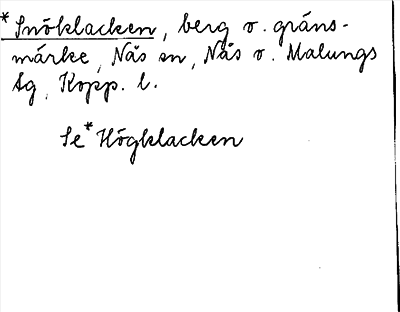 *Snöklacken, berg o. gräns-
märke, Nås sn, Nås o. Malungs
tg, Kopp. l.
Se *Högklacken